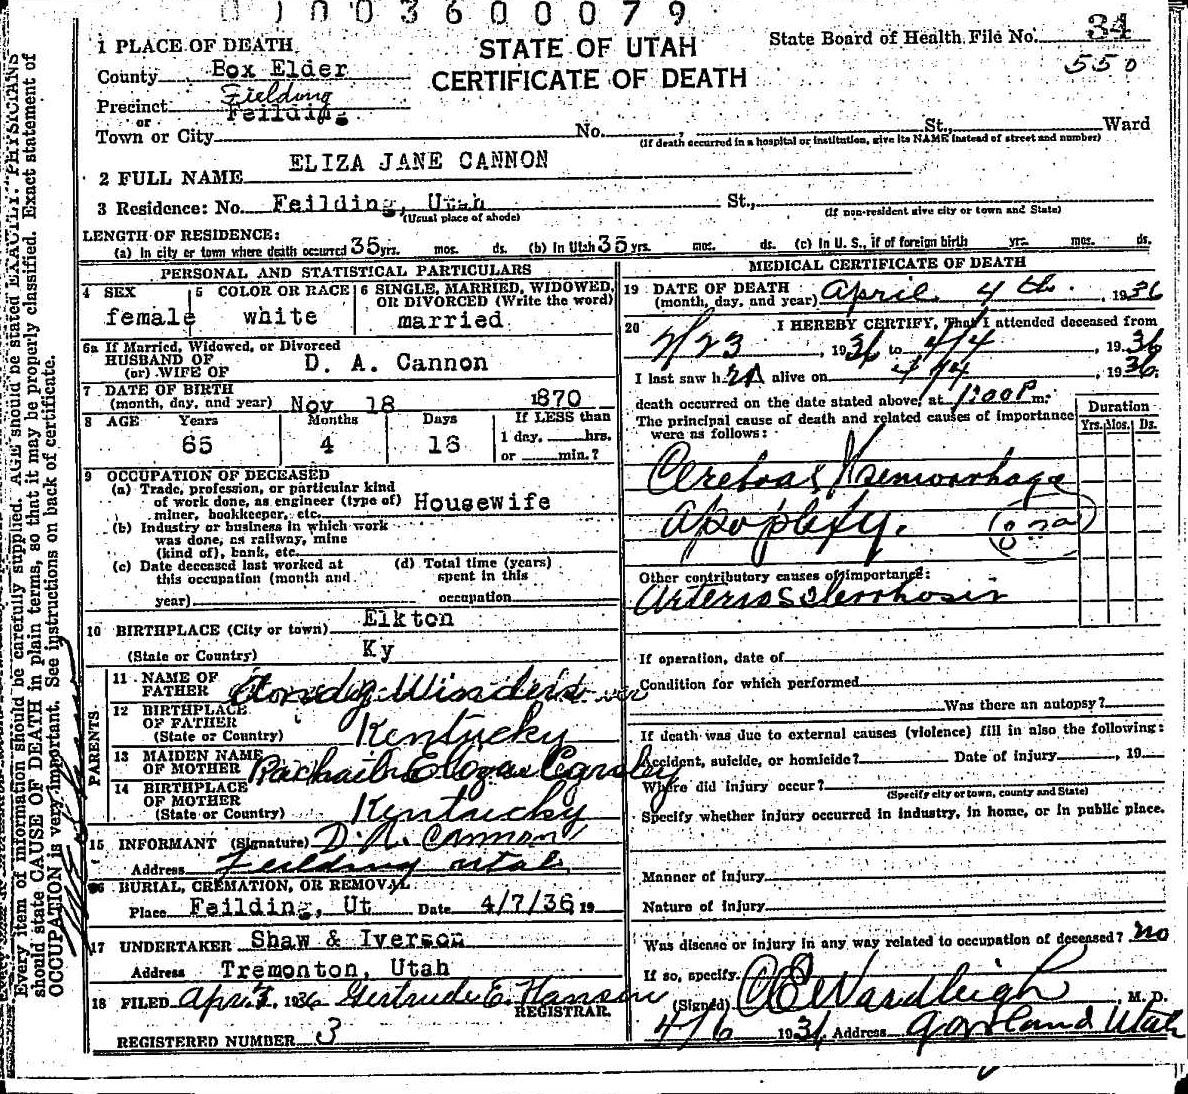 0 1 0 0 3 6 0 0 0 7 9
1 PLACE OF DEATH
STATE OF UTAH
CERTIFICATE OF DEATH
State Board of Health File No. 34
550
County Box Elder
Fielding
Precinct Feilding
or
Town or City No. , St., Ward
(If death occurred in a hospital or institution, give its NAME instead of street and number)
2 FULL NAME ELIZA JANE CANNON
3 Residence: No. Feilding, Utah St.,
(Usual place of abode) (If non-resident give city or town and State)
LENGTH OF RESIDENCE:
(a) In city or town where death occurred 35 yrs. mos. ds. (b) In Utah 35 yrs. mos. ds. (c) In U. S., if of foreign birth yrs. mos. ds.
PERSONAL AND STATISTICAL PARTICULARS
4 SEX
female
5 COLOR OR RACE
white
6 SINGLE, MARRIED, WIDOWED,
OR DIVORCED (Write the word)
married
6a If Married, Widowed, or Divorced
HUSBAND OF
(or) WIFE OF D. A. Cannon
7 DATE OF BIRTH
(month, day, and year) Nov 18 1870
8 AGE Years Months Days If LESS than
65 4 16 1 day, hrs.
or min.?
9 OCCUPATION OF DECEASED
(a) Trade, profession, or particular kind
of work done, as engineer (type of)
miner, bookkeeper, etc. Housewife
(b) Industry or business in which work
was done, as railway, mine
(kind of), bank, etc.
(c) Date deceased last worked at
this occupation (month and
year)
(d) Total time (years)
spent in this
occupation
10 BIRTHPLACE (City or town) Elkton
(State or Country) Ky
PARENTS
11 NAME OF
FATHER
12 BIRTHPLACE
OF FATHER
(State or Country) Kentucky
13 MAIDEN NAME
OF MOTHER
14 BIRTHPLACE
OF MOTHER
(State or Country) Kentucky
15 INFORMANT (Signature) D. A. Cannon
Address Feilding Utah
16 BURIAL, CREMATION, OR REMOVAL
Place Feilding, Ut Date 4/7/36, 19
17 UNDERTAKER Shaw & Iverson
Address Tremonton, Utah
18 FILED Apr. 7, 1936 Gertrude E. Hansen
REGISTRAR.
REGISTERED NUMBER 3
MEDICAL CERTIFICATE OF DEATH
19 DATE OF DEATH
(month, day, and year) April 4th. , 1936
20 I HEREBY CERTIFY, That I attended deceased from
2/23 , 1936 to 4/4 , 1936
I last saw her alive on 4/4 , 1936
death occurred on the date stated above, at 1:00 P m.
The principal cause of death and related causes of importance
were as follows:
Duration
Yrs. Mos. Ds.
Cerebral Haemorrhage
Apoplexy.
Other contributory causes of importance:
Arteriosclerrhosis
If operation, date of
Condition for which performed
Was there an autopsy?
If death was due to external causes (violence) fill in also the following:
Accident, suicide, or homicide? Date of injury , 19
Where did injury occur?
(Specify city or town, county and State)
Specify whether injury occurred in industry, in home, or in public place.
Manner of injury
Nature of injury
Was disease or injury in any way related to occupation of deceased? no
If so, specify.
(Signed) , M. D.
4/6 1936 Address Garland Utah
Every item of information should be carefully supplied. AGE should be stated EXACTLY. PHYSICIANS
should state CAUSE OF DEATH in plain terms, so that it may be properly classified. Exact statement of
OCCUPATION is very important. See instructions on back of certificate.